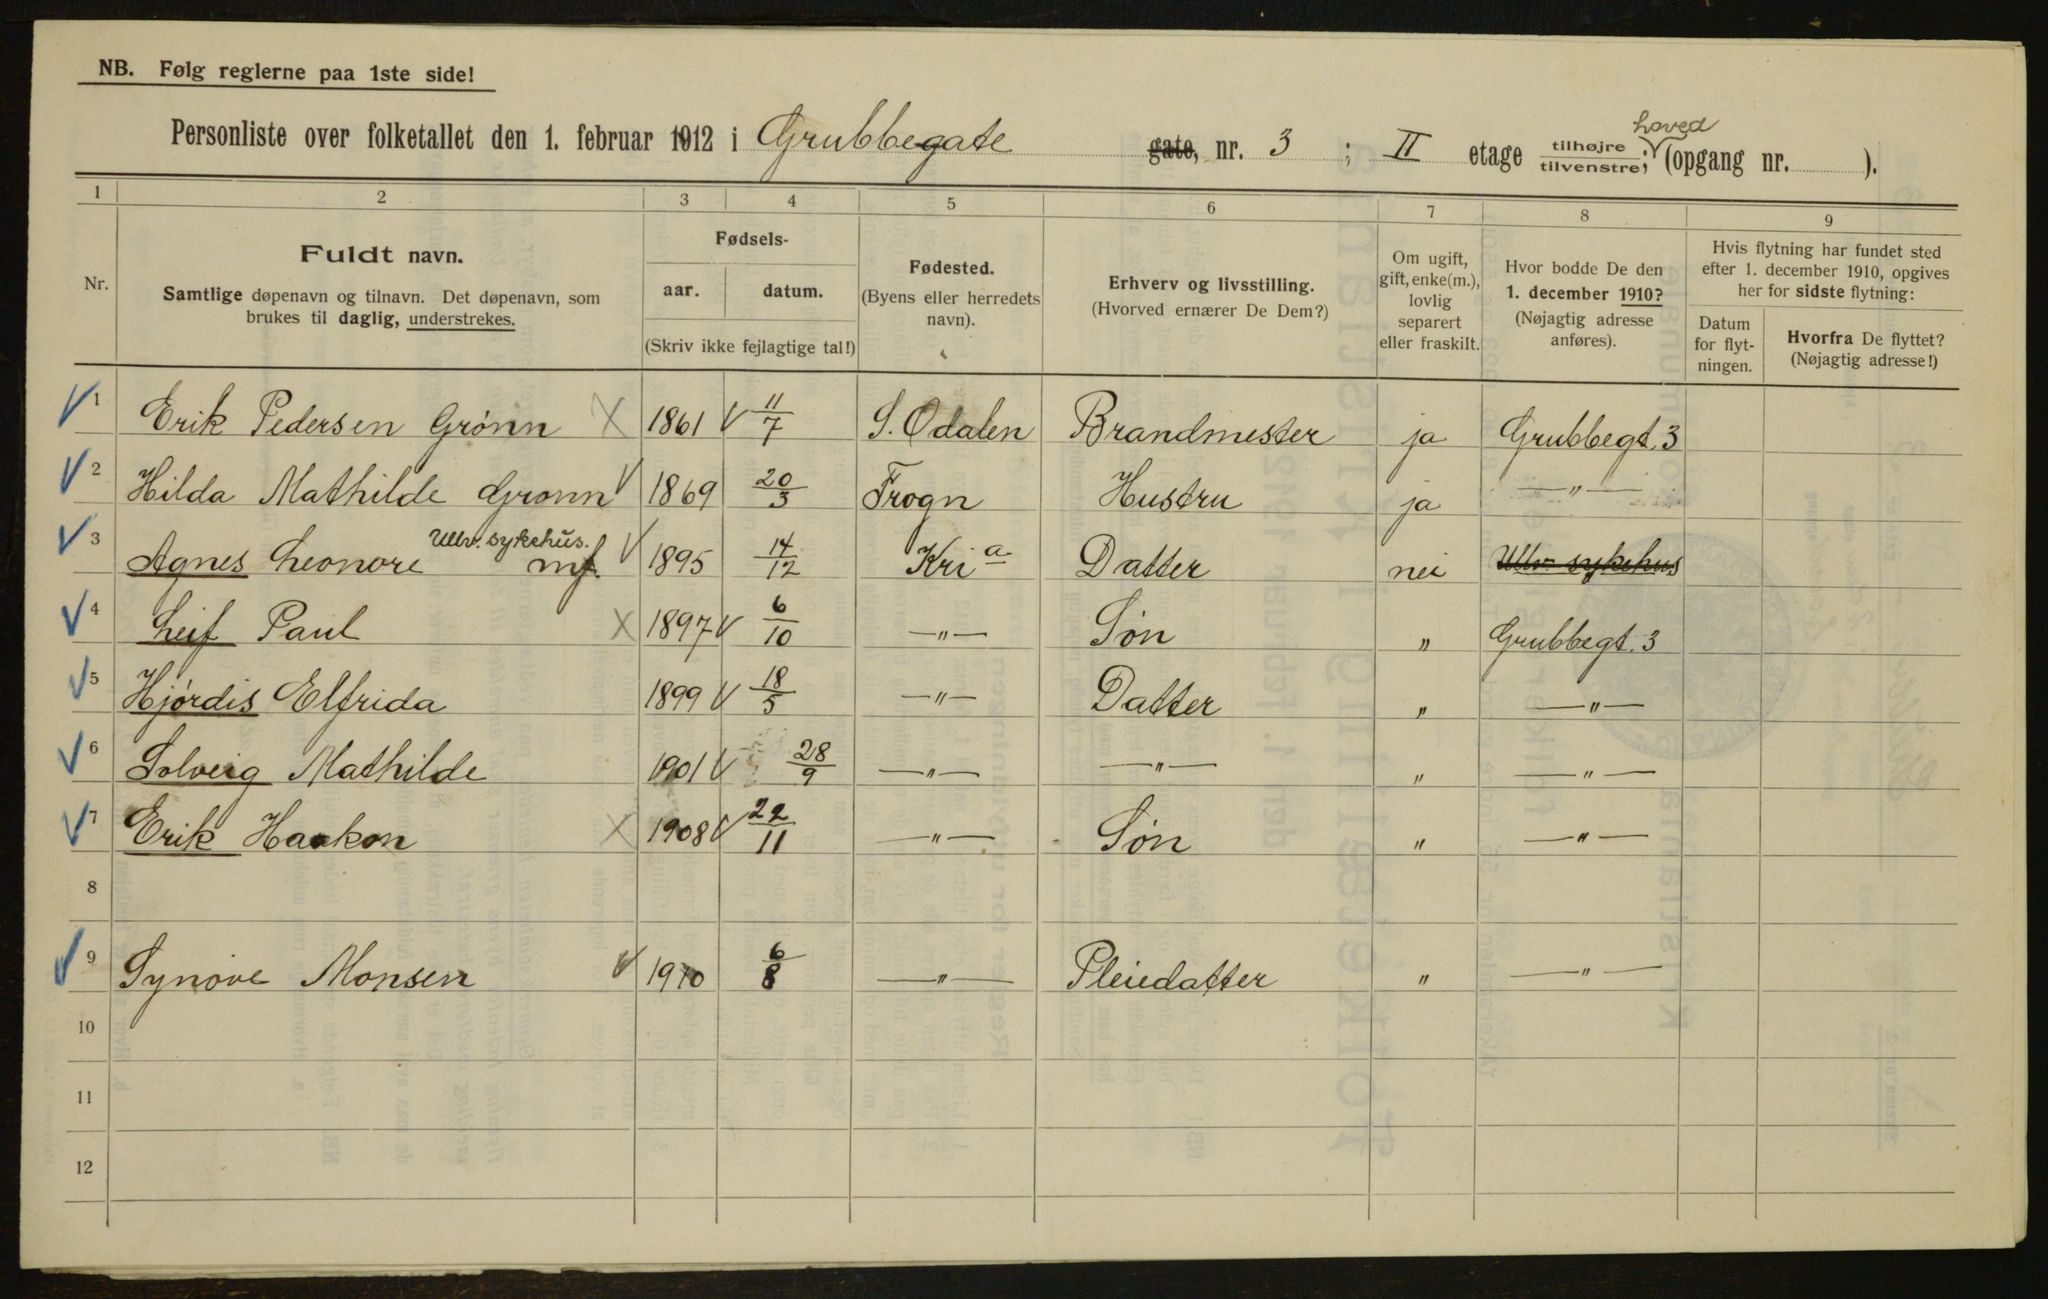 NB. Følg reglerne paa 1ste side!
hoved
Personliste over folketallet den 1. februar 1912 i Grubbegate gate, nr. 3 ; II etage tilhøjre tilvenstre; (opgang nr. ).
1 2 3 4 5 6 7 8 9
Nr.
Fuldt navn.
Samtlige døpenavn og tilnavn. Det døpenavn, som
brukes til daglig, understrekes.
Fødsels-
aar. datum.
(Skriv ikke fejlagtige tal!)
Fødested.
(Byens eller herredets
navn).
Erhverv og livsstilling.
(Hvorved ernærer De Dem?)
Om ugift,
gift, enke(m.),
lovlig
separert
eller fraskilt.
Hvor bodde De den
1. december 1910?
(Nøjagtig adresse
anføres).
Hvis flytning har fundet sted
efter 1. december 1910, opgives
her for sidste flytning:
Datum
for flyt-
ningen.
Hvorfra De flyttet?
(Nøjagtig adresse!)
1 Erik Pedersen Grønn 1861 11/7 S. Odalen Brandmester ja Grubbegt. 3
2 Hilda Mathilde Grønn 1869 20/3 Frogn Hustru ja —"—
Ullv. sykehus.
3 Agnes Leonore mf. 1895 14/12 Kria Datter nei Ullv. sykehus
4 Leif Paul 1897 6/10 —"— Søn " Grubbegt. 3
5 Hjørdis Elfrida 1899 18/5 —"— Datter " —"—
6 Solveig Mathilde 1901 28/9 —"— —"— " —"—
7 Erik Haakon 1908 22/11 —"— Søn " —"—
8
9 Synøve Monsen 1910 6/8 —"— Pleiedatter " —"—
10
11
12